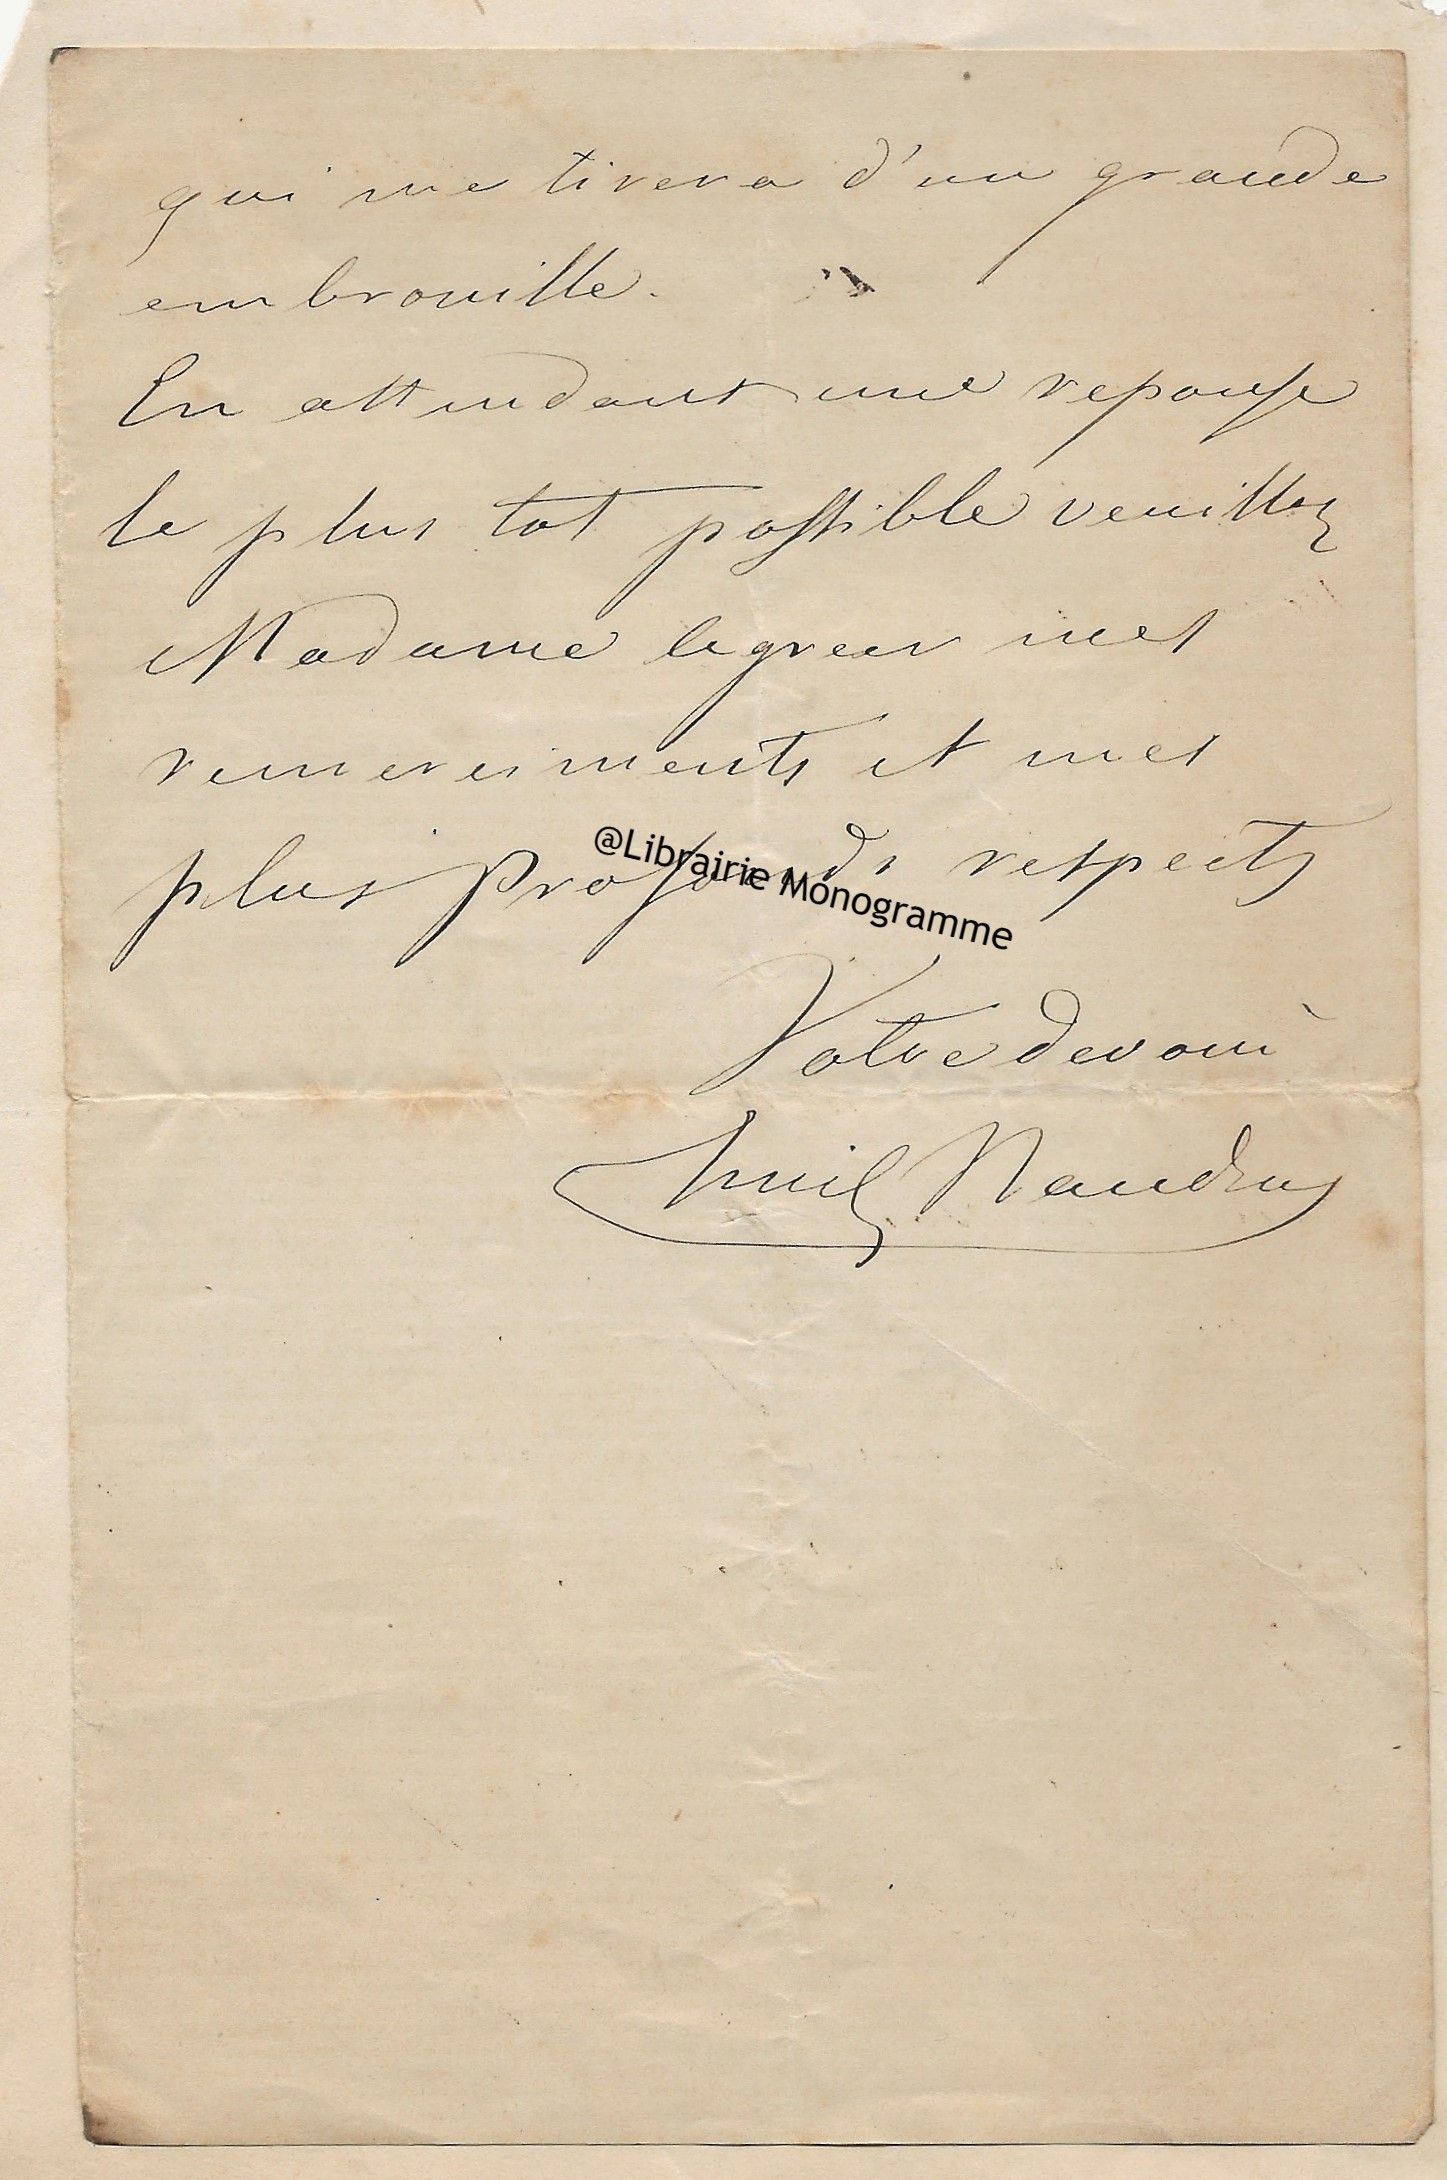 qui me tirera d'un grande
embrouille.
En attendant une reponse
le plus tot possible veuillez
Madame legreer mes
remerciments et mes
plus profonds respects
@Librairie Monogramme
Votre devoué
Emile